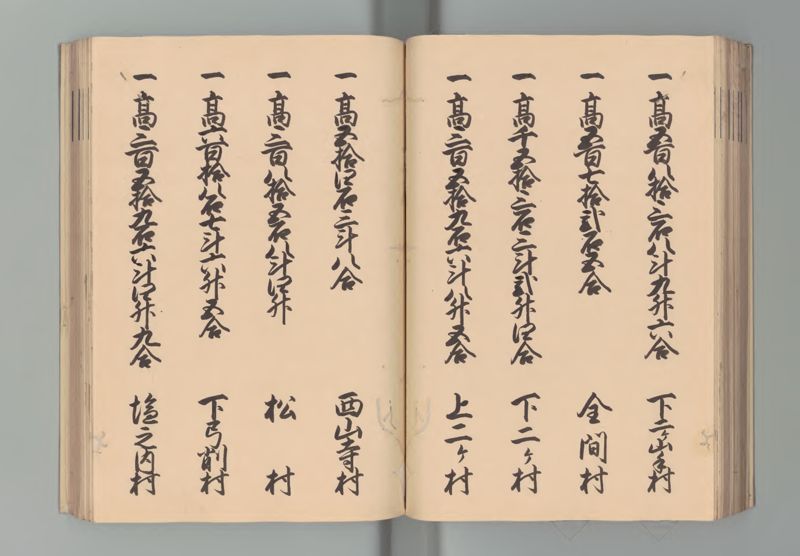 一 髙五百八拾三石八斗九升六合 下二ヶ山手村
一 髙五百七拾弐石五合 全間村
一 髙千五拾三石三斗弐升四合 下二ヶ村
一 髙三百五拾九石六斗八升五合 上二ヶ村
一 髙五拾四石三斗八合 西山寺村
一 髙三百八拾五石八斗四升 松村
一 髙六百拾八石七斗六升五合 下弓削村
一 髙三百五拾九石六斗四升九合 塩之内村